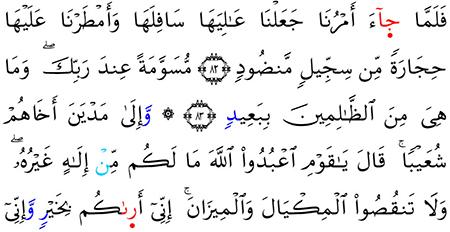 فَلَمَّا جَآءَ أَمْرُنَا جَعَلْنَا عَٰلِيَهَا سَافِلَهَا وَأَمْطَرْنَا عَلَيْهَا
حِجَارَةً مِّن سِجِّيلٍ مَّنضُودٍ ﴿٨٢﴾ مُّسَوَّمَةً عِندَ رَبِّكَ ۖ وَمَا
هِىَ مِنَ ٱلظَّٰلِمِينَ بِبَعِيدٍ ﴿٨٣﴾ ۞ وَإِلَىٰ مَدْيَنَ أَخَاهُمْ
شُعَيْبًا ۚ قَالَ يَٰقَوْمِ ٱعْبُدُوا۟ ٱللَّهَ مَا لَكُم مِّنْ إِلَٰهٍ غَيْرُهُۥ ۖ
وَلَا تَنقُصُوا۟ ٱلْمِكْيَالَ وَٱلْمِيزَانَ ۚ إِنِّىٓ أَرَىٰكُم بِخَيْرٍ وَإِنِّىٓ